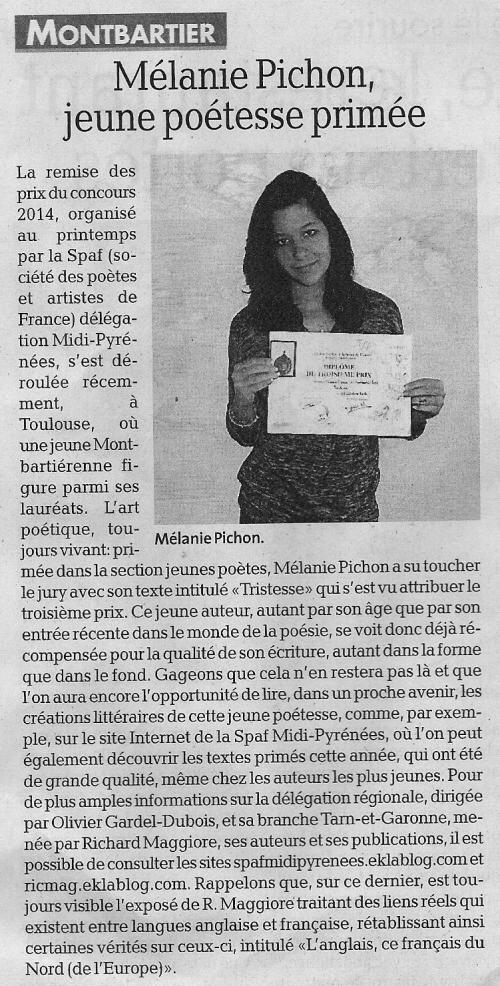 MONTBARTIER
Mélanie Pichon,
jeune poétesse primée
La remise des
prix du concours
2014, organisé
au printemps
par la Spaf (so-
ciété des poètes
et artistes de
France) déléga-
tion Midi-Pyré-
nées, s'est dé-
roulée récem-
ment, à
Toulouse, où
une jeune Mont-
bartiérenne fi-
gure parmi ses
lauréats. L'art
poétique, tou-
jours vivant: pri-
DIPLÔME
DU TROISIEME PRIX
Mélanie Pichon.
mée dans la section jeunes poètes, Mélanie Pichon a su toucher
le jury avec son texte intitulé «Tristesse» qui s'est vu attribuer le
troisième prix. Ce jeune auteur, autant par son âge que par son
entrée récente dans le monde de la poésie, se voit donc déjà ré-
compensée pour la qualité de son écriture, autant dans la forme
que dans le fond. Gageons que cela n'en restera pas là et que
l'on aura encore l'opportunité de lire, dans un proche avenir, les
créations littéraires de cette jeune poétesse, comme, par exem-
ple, sur le site Internet de la Spaf Midi-Pyrénées, où l'on peut
également découvrir les textes primés cette année, qui ont été
de grande qualité, même chez les auteurs les plus jeunes. Pour
de plus amples informations sur la délégation régionale, dirigée
par Olivier Gardel-Dubois, et sa branche Tarn-et-Garonne, me-
née par Richard Maggiore, ses auteurs et ses publications, il est
possible de consulter les sites spafmidipyrenees.eklablog.com et
ricmag.eklablog.com. Rappelons que, sur ce dernier, est tou-
jours visible l'exposé de R. Maggiore traitant des liens réels qui
existent entre langues anglaise et française, rétablissant ainsi
certaines vérités sur ceux-ci, intitulé «L'anglais, ce français du
Nord (de l'Europe)».